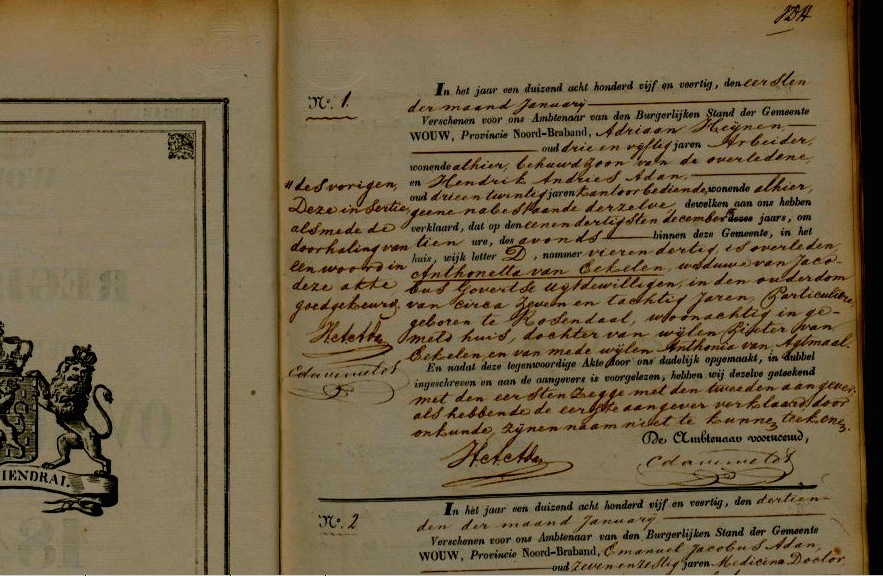 N.º 1.
In het jaar een duizend acht honderd vijf en veertig, den eersten
der maand January
Verschenen voor ons Ambtenaar van den Burgerlijken Stand der Gemeente
WOUW, Provincie Noord-Braband, Adriaan Heijnen,
oud drie en vyftig jaren Arbeider,
wonende alhier, behuwdzoon van de overledene,
en Hendrik Andries Adan,
oud drie en twintig jaren kantoorbediende, wonende alhier,
geene nabestaande derzelve, dewelken aan ons hebben
verklaard, dat op den eenendertigsten december dezes jaars, om
tien ure, des avonds binnen deze Gemeente, in het
huis, wijk letter D, nommer vierendertig, is overleden,
Anthonetta van Eekelen, weduwe van Jaco-
bus Govertse Uytdewilligen, in den ouderdom
van circa zeven en tachtig jaren, Particuliere
geboren te Rosendaal, woonachtig in ge-
meld huis, dochter van wylen Pieter van
Eekelen, en van mede wylen Anthonia van Agtmaal.
En nadat deze tegenwoordige Akte door ons dadelijk opgemaakt, in dubbel
ingeschreven en aan de aangevers is voorgelezen, hebben wij dezelve geteekend
met den eersten zegge met den tweeden aangever
als hebbende de eerste aangever verklaard door
onkunde, zynen naam niet te kunnen teekenen.
De Ambtenaar voornoemd,
des vorigen,
Deze insertie
alsmede de
doorhaling van
een woord in
deze akte
goedgekeurd.
N.º 2
In het jaar een duizend acht honderd vijf en veertig, den dertien-
den der maand January
Verschenen voor ons Ambtenaar van den Burgerlijken Stand der Gemeente
WOUW, Provincie Noord-Braband, Emanuel Jacobus Adan,
oud zeven en zestig jaren Medicina Doctor